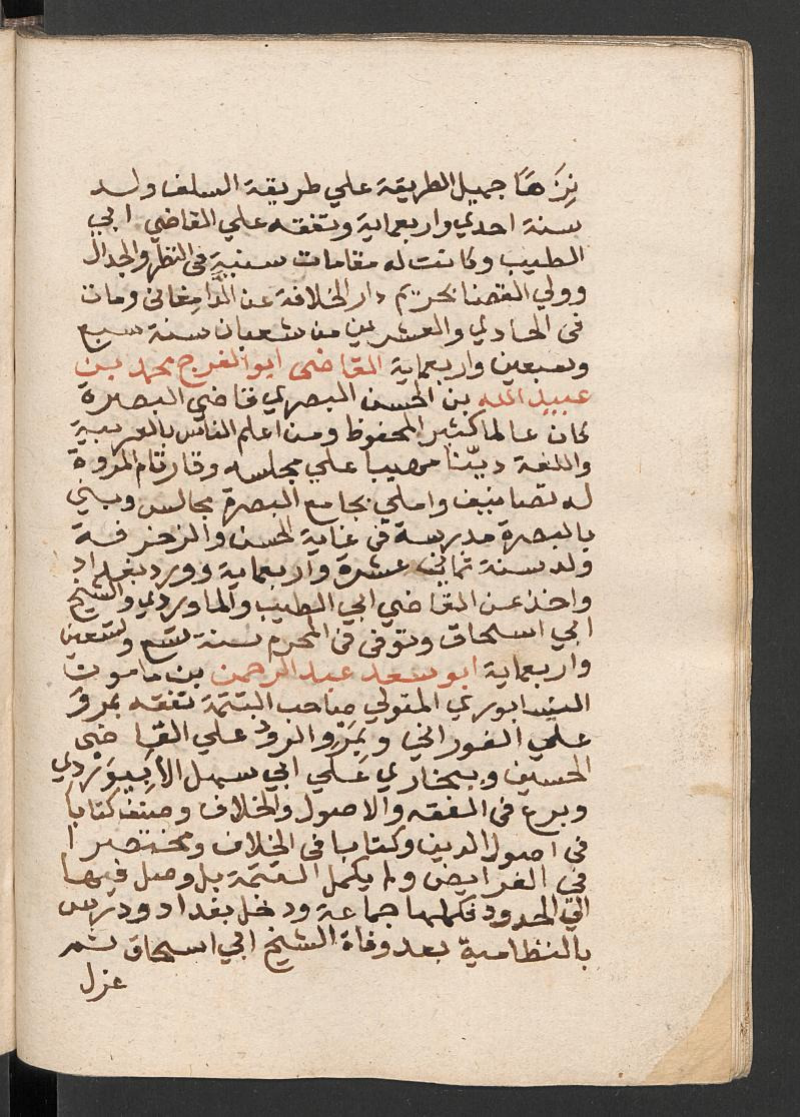 نَزِهًا جميل الطريقة علي طريقة السلف ولد
سنة احدي واربعماية وتفقه علي القاضي ابي
الطيب وكانت له مقامات سنية في النظر والجدال
وولي القضا بحريم دار الخلافة عن الدامغاني ومات
في الحادي والعشرين من شعبان سنة سبع
وسبعين واربعماية القاضي ابو الفرج محمد بن
عبيد الله بن الحسن البصري قاضي البصرة
كان عالما كثير المحفوظ ومن اعلم الناس بالعربية
واللغة ديّنا مهيبا علي مجلسه وقار تام المروة
له تصانيف واملي بجامع البصرة مجالس وبني
بالبصرة مدرسة في غاية الحسن والزخرفة
ولد سنة ثماني عشرة واربعماية وورد بغداد
واخذ عن القاضي ابي الطيب والماوردي والشيخ
ابي اسحاق وتوفي في المحرم سنة تسع وتسعين
واربعماية ابو سعد عبد الرحمن بن مامون
النيسابوري المتولي صاحب التتمة تفقه بمرو
علي الفوراني وبمَرْو الروذ علي القاضي
الحسين وببخاري علي ابي سهل الأَبِيوَرْدي
وبرع في الفقه والاصول والخلاف وصنف كتابا
في اصول الدين وكتابا في الخلاف ومختصرا
في الفرايض ولم يكمل التتمة بل وصل فيها
الي الحدود فكملها جماعة ودخل بغداد ودرس
بالنظامية بعد وفاة الشيخ ابي اسحاق ثم
عزل